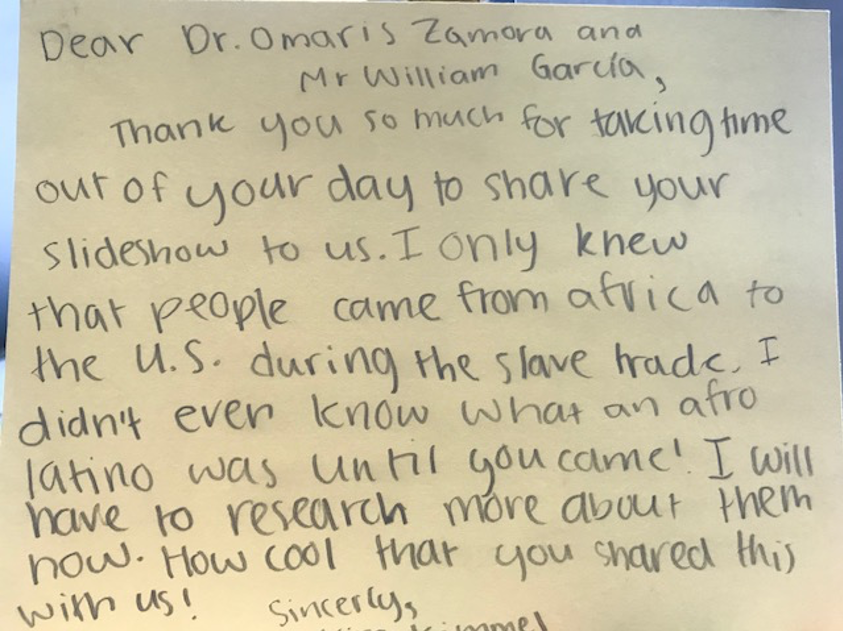 Dear Dr. Omaris Zamora and
Mr William García,
Thank you so much for taking time
out of your day to share your
slideshow to us. I only knew
that people came from africa to
the U.S. during the slave trade. I
didn't even know what an afro
latino was until you came! I will
have to research more about them
now. How cool that you shared this
with us! Sincerly,